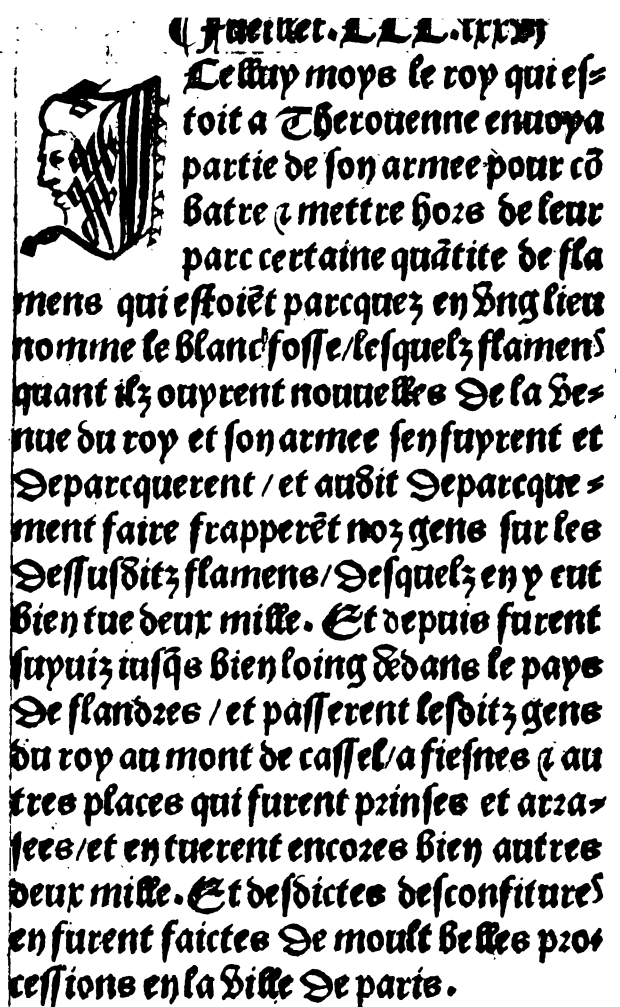 ¶ Fueillet.CCC.lxxvi
Celluy moys le roy qui es⸗
toit a Therouenne enuoya
partie de son armee pour cō
batre ⁊ mettre hors de leur
parc certaine quātite de fla
mens qui estoiēt parcquez en vng lieu
nomme le blanc fosse/lesquelz flamens
quant ilz ouyrent nouuelles de la ve⸗
nue du roy et son armee sen fuyrent et
deparcquerent / et audit deparcque⸗
ment faire frapperēt noz gens sur les
dessusditz flamens/desquelz en y eut
bien tue deux mille. Et depuis furent
suyuiz iusq̄s bien loing dedans le pays
de flandres / et passerent lesditz gens
du roy au mont de cassel/a fiesnes ⁊ au
tres places qui furent prinses et arra⸗
sees/et en tuerent encores bien autres
deux mille. Et desdictes desconfitures
en furent faictes de moult belles pro⸗
cessions en la ville de paris.